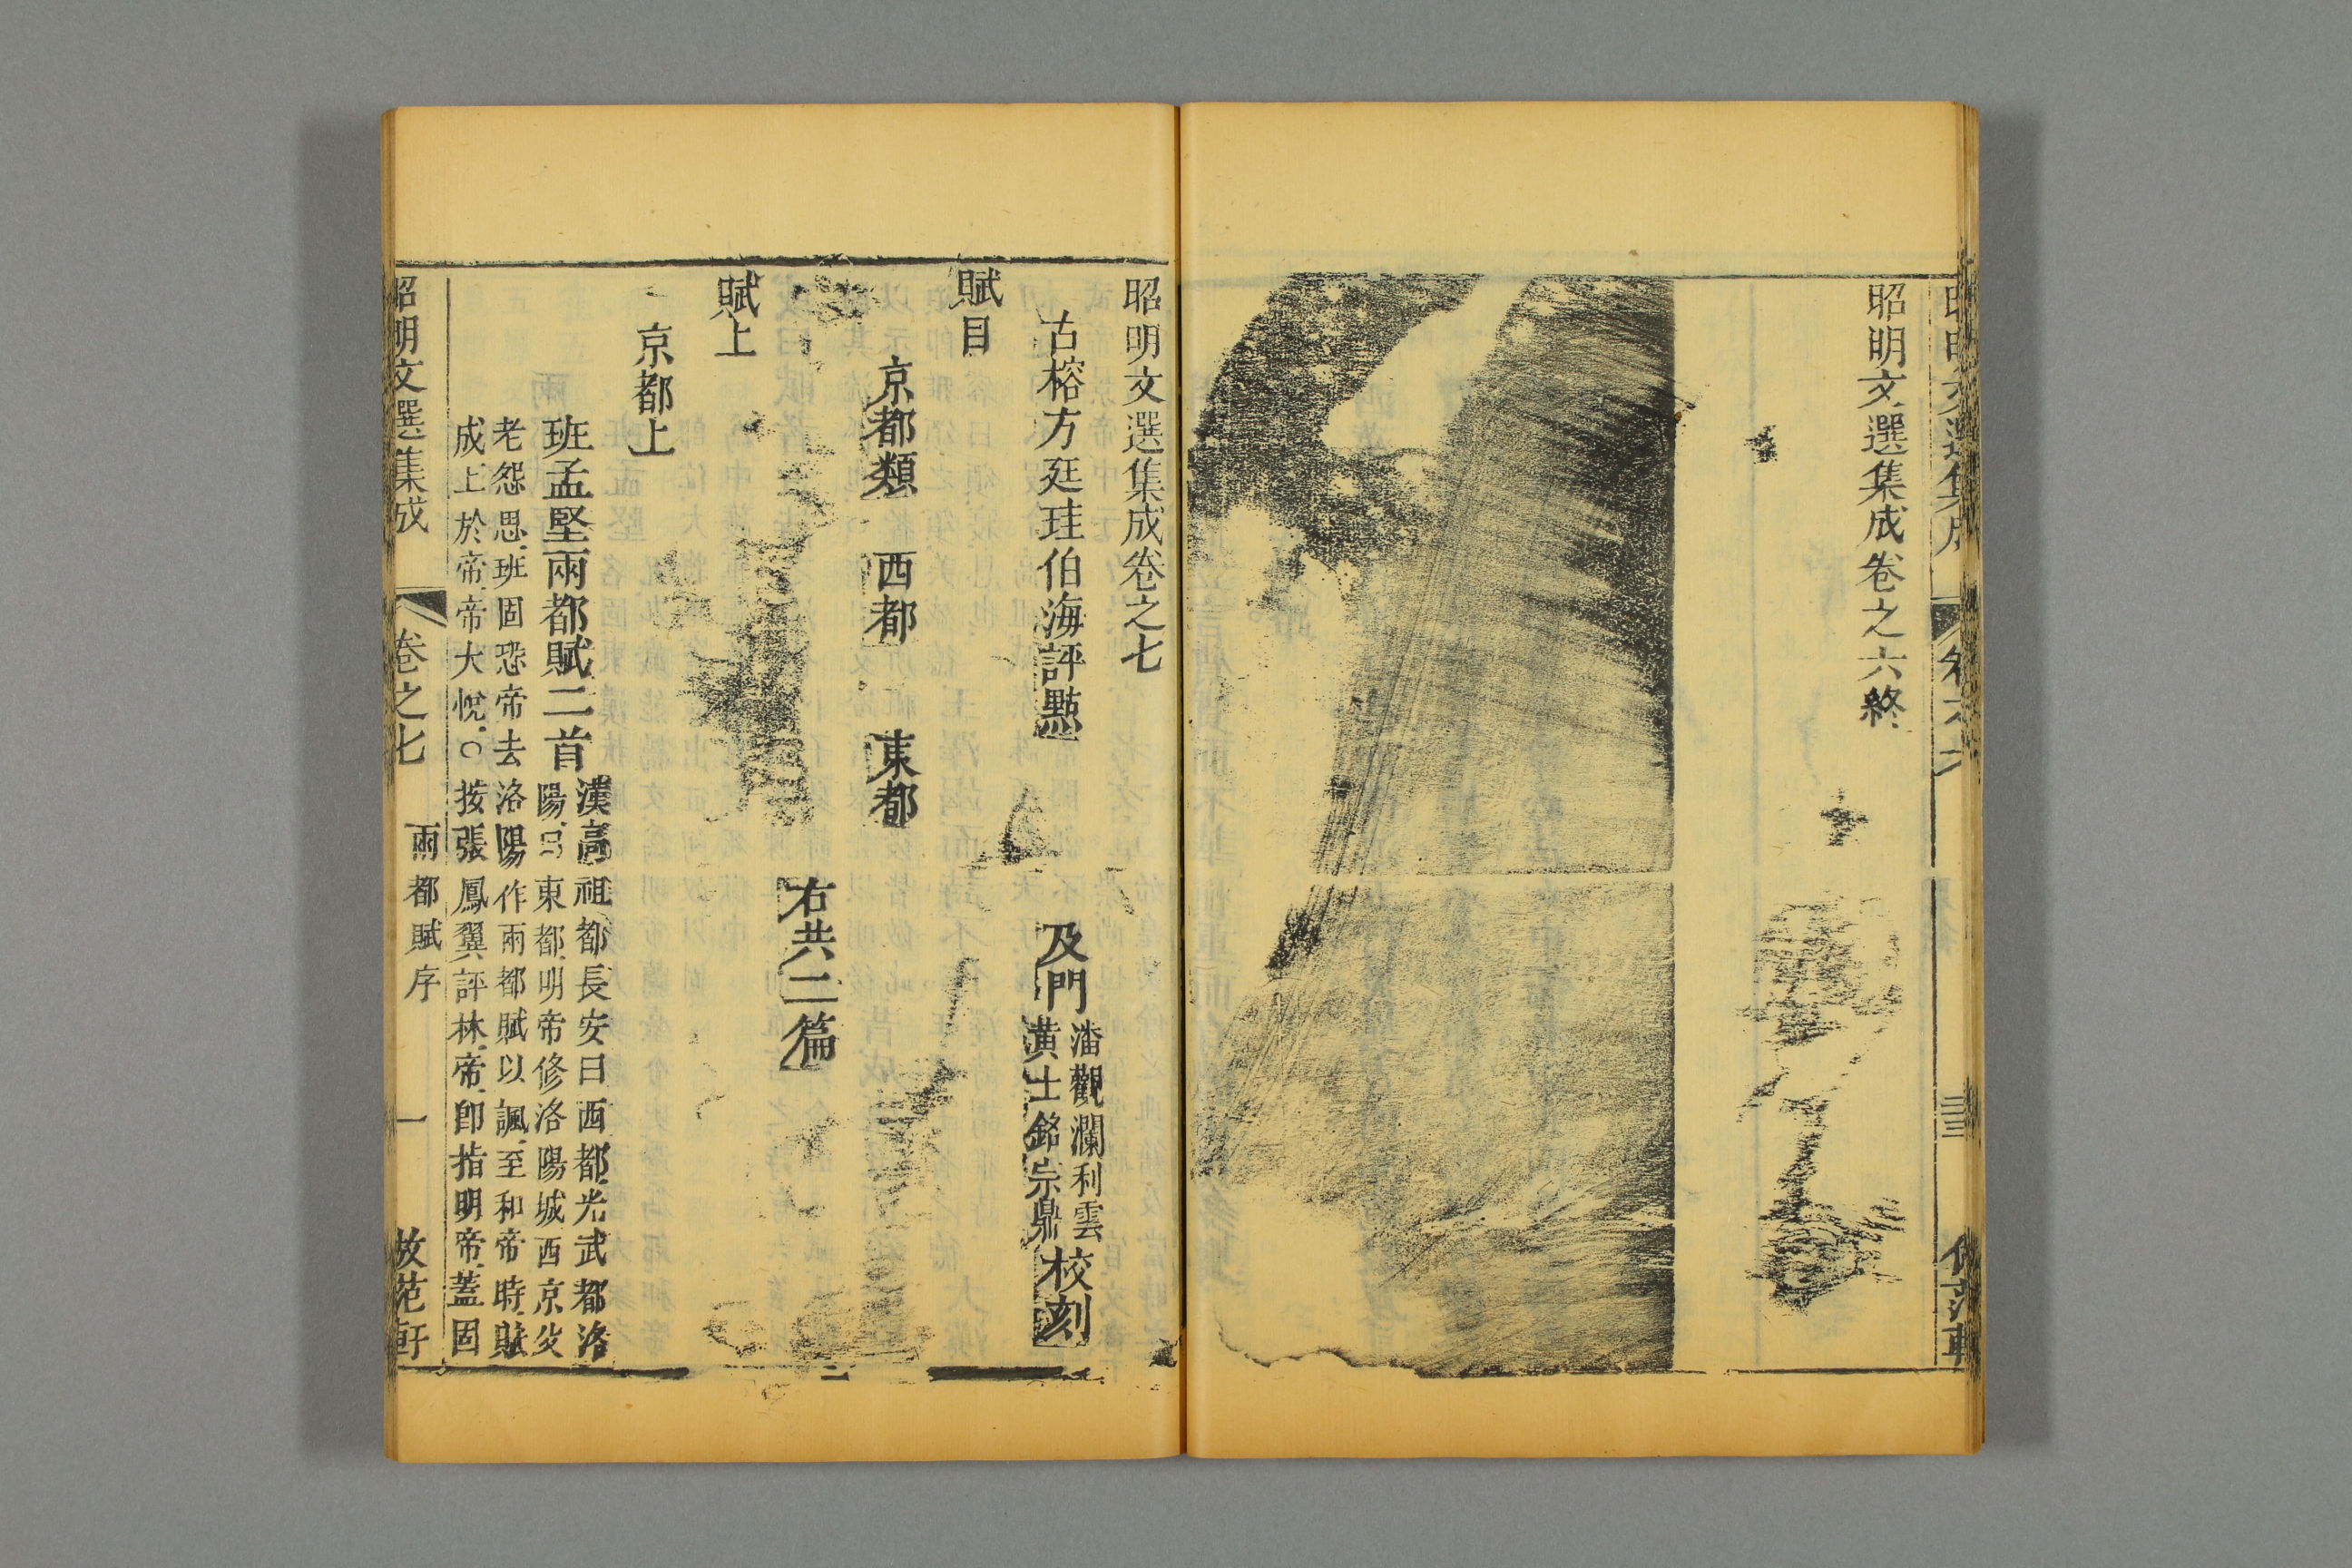 昭明文選集成
卷六
昭明文選集成卷之六終
昭明文選集成卷之七
古榕方廷珪伯海評點
及門
潘觀瀾利雲
黃士銘宗鼎
校刻
賦目
京都類 西都 東都
右共二篇
賦上
京都上
班孟堅兩都賦二首
漢高祖都長安曰西都光武都洛
陽曰東都明帝修洛陽城西京父
老怨思班固恐帝去洛陽作兩都賦以諷至和帝時賦
成上於帝帝大悅○按張鳳翼評林帝即指明帝蓋固
昭明文選集成 卷之七 兩都賦序 一 倣范軒